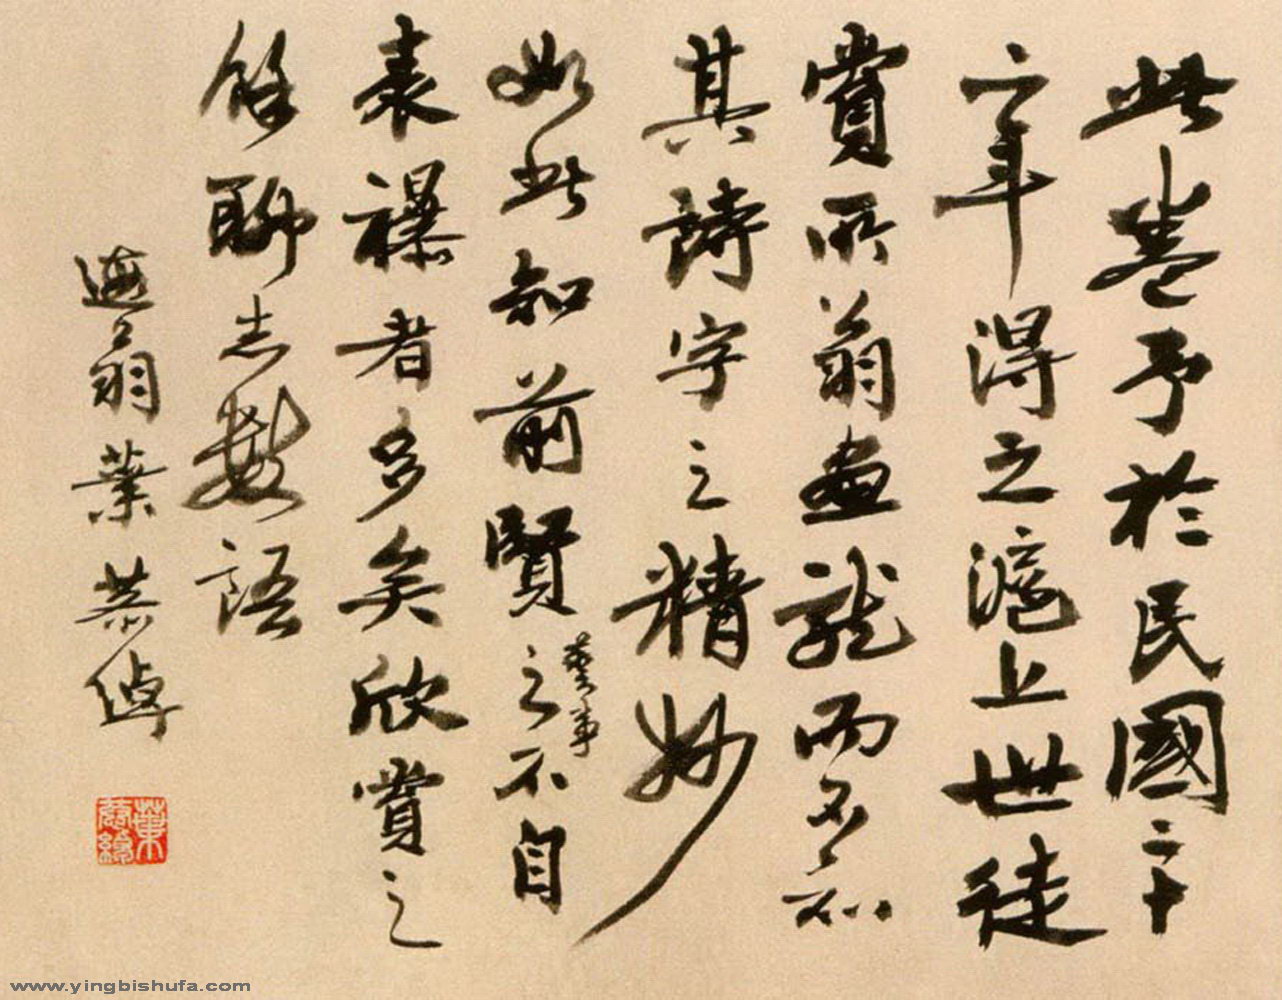 此卷予於民國二十
六年得之滬上世徒
賞所翁畫龍而不知
其詩字之精妙
如此知前賢之藝事不自
表襮者多矣欣賞之
餘聊志數語
遐翁葉恭綽
葉恭綽
www.yingbishufa.com